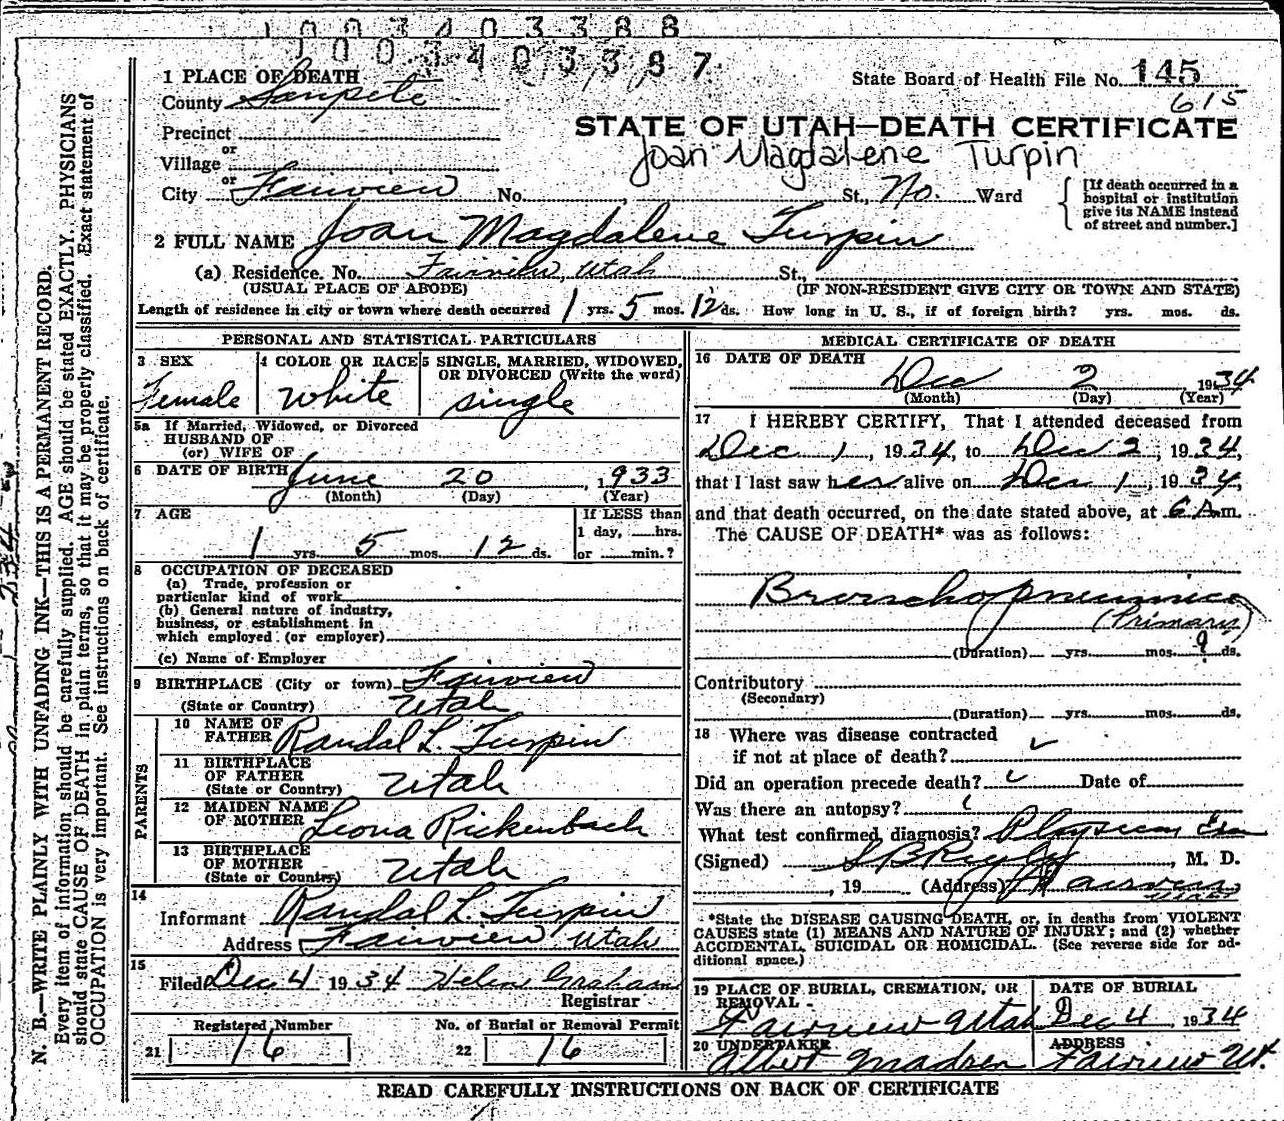 1003403388
1003403387
1 PLACE OF DEATH
State Board of Health File No. 145
County Sanpete
615
Precinct
STATE OF UTAH—DEATH CERTIFICATE
or
Joan Magdalene Turpin
Village
or
City Fairview No. St., No. Ward
[If death occurred in a hospital or institution give its NAME instead of street and number.]
2 FULL NAME Joan Magdalene Turpin
(a) Residence. No. Fairview, Utah St.,
(USUAL PLACE OF ABODE) (IF NON-RESIDENT GIVE CITY OR TOWN AND STATE)
Length of residence in city or town where death occurred 1 yrs. 5 mos. 12 ds. How long in U. S., if of foreign birth? yrs. mos. ds.
PERSONAL AND STATISTICAL PARTICULARS
3 SEX
Female
4 COLOR OR RACE
White
5 SINGLE, MARRIED, WIDOWED, OR DIVORCED (Write the word)
single
5a If Married, Widowed, or Divorced
HUSBAND OF
(or) WIFE OF
6 DATE OF BIRTH June 20, 1933
(Month) (Day) (Year)
7 AGE
1 yrs. 5 mos. 12 ds.
If LESS than
1 day, hrs.
or min.?
8 OCCUPATION OF DECEASED
(a) Trade, profession or
particular kind of work
(b) General nature of industry,
business, or establishment in
which employed (or employer)
(c) Name of Employer
9 BIRTHPLACE (City or town) Fairview
(State or Country) Utah
PARENTS
10 NAME OF
FATHER Randal L. Turpin
11 BIRTHPLACE
OF FATHER
(State or Country) Utah
12 MAIDEN NAME
OF MOTHER Leona Rickenbach
13 BIRTHPLACE
OF MOTHER
(State or Country) Utah
14
Informant Randal L. Turpin
Address Fairview Utah
15
Filed Dec 4 1934 Helen Graham
Registrar
Registered Number
21 16
No. of Burial or Removal Permit
22 16
MEDICAL CERTIFICATE OF DEATH
16 DATE OF DEATH
Dec 2 1934
(Month) (Day) (Year)
17 I HEREBY CERTIFY, That I attended deceased from
Dec 1, 1934, to Dec 2, 1934,
that I last saw her alive on Dec 1, 1934,
and that death occurred, on the date stated above, at 6 A.m.
The CAUSE OF DEATH* was as follows:
Bronchopneumnia
(Primary)
(Duration) yrs. mos. 9 ds.
Contributory
(Secondary)
(Duration) yrs. mos. ds.
18 Where was disease contracted
if not at place of death?
Did an operation precede death? Date of
Was there an autopsy?
What test confirmed diagnosis? Physical
(Signed) , M. D.
, 19 (Address) Fairview
Utah
*State the DISEASE CAUSING DEATH, or, in deaths from VIOLENT
CAUSES state (1) MEANS AND NATURE OF INJURY; and (2) whether
ACCIDENTAL, SUICIDAL OR HOMICIDAL. (See reverse side for ad-
ditional space.)
19 PLACE OF BURIAL, CREMATION, OR
REMOVAL
Fairview Utah
DATE OF BURIAL
Dec 4, 1934
20 UNDERTAKER
Albert Madsen
ADDRESS
Fairview Ut.
READ CAREFULLY INSTRUCTIONS ON BACK OF CERTIFICATE
N. B.—WRITE PLAINLY WITH UNFADING INK—THIS IS A PERMANENT RECORD.
Every item of information should be carefully supplied. AGE should be stated EXACTLY. PHYSICIANS
should state CAUSE OF DEATH in plain terms, so that it may be properly classified. Exact statement of
OCCUPATION is very important. See instructions on back of certificate.